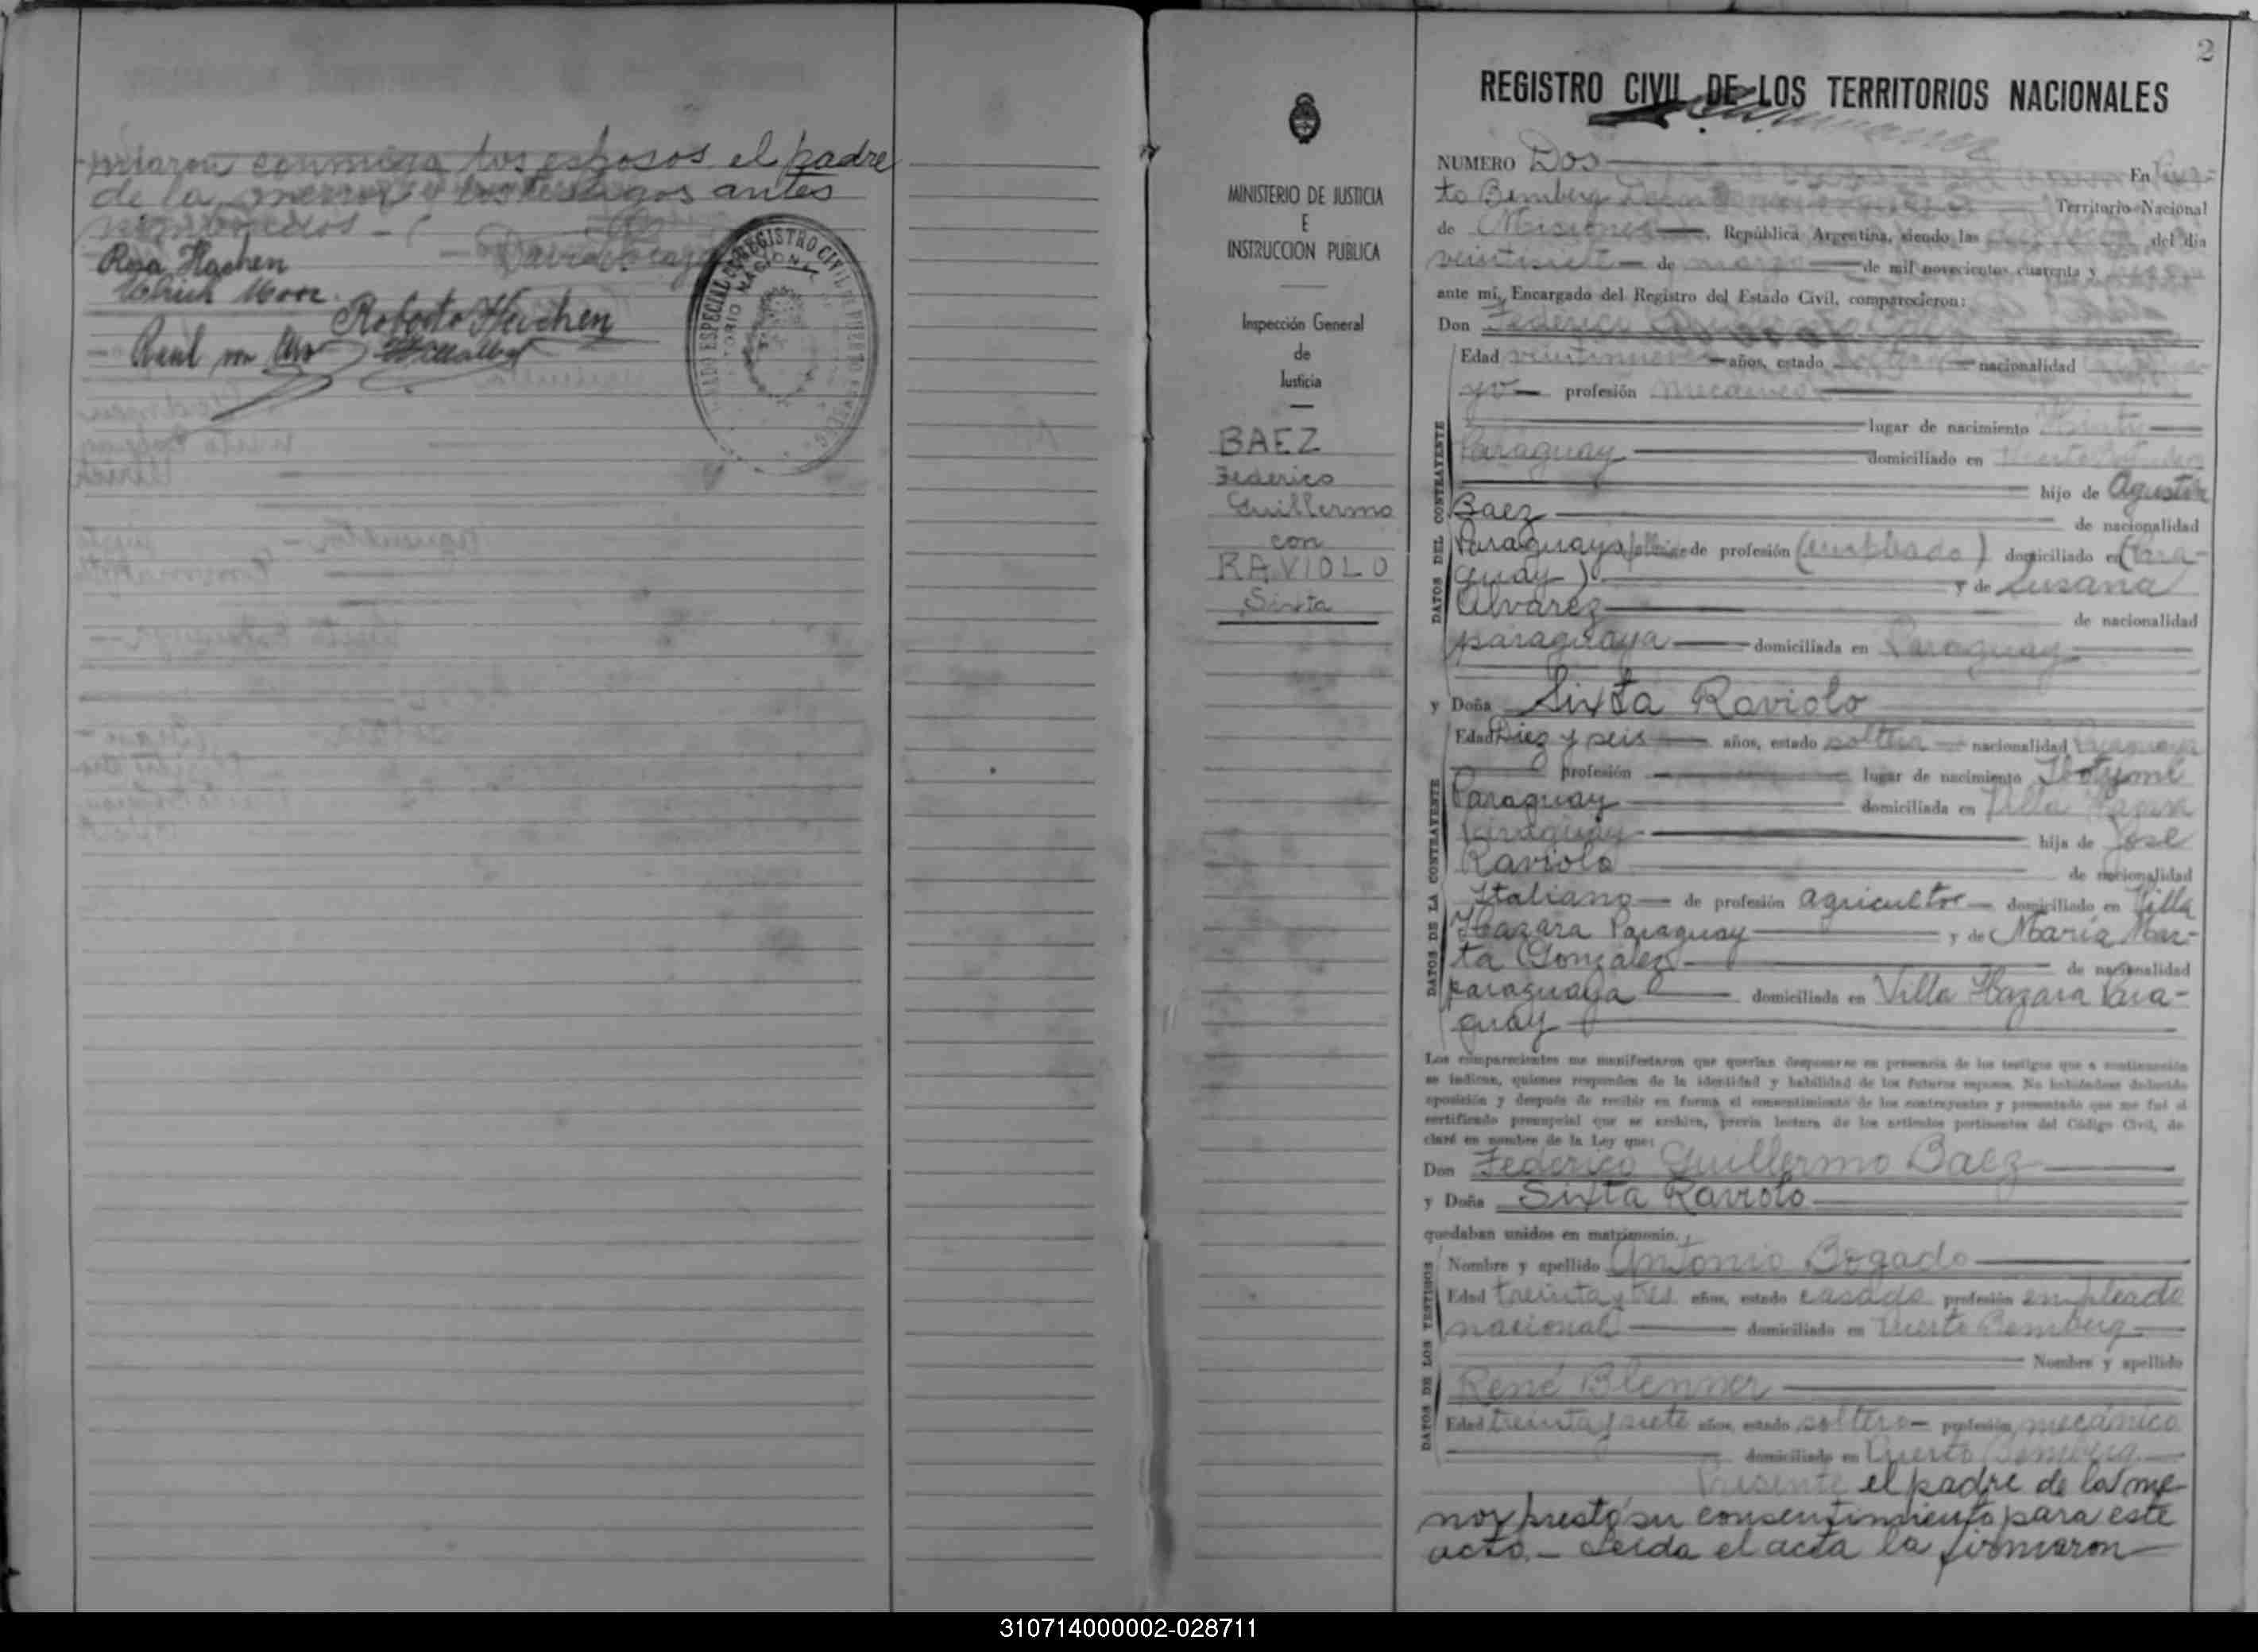 firmaron conmigo los esposos el padre
de la menor y los testigos antes
nombrados -
Rosa Hachen
Ulrich Moor
Roberto Heichen
REGISTRO CIVIL
2
REGISTRO CIVIL DE LOS TERRITORIOS NACIONALES
MINISTERIO DE JUSTICIA
E
INSTRUCCION PUBLICA
Inspección General
de
Justicia
BAEZ
Federico
Guillermo
con
RAVIOLO
Sixta
NUMERO Dos En Puer-
to Bemberg Territorio Nacional
de Misiones República Argentina, siendo las del día
veintisiete de marzo de mil novecientos cuarenta y
ante mí, Encargado del Registro del Estado Civil, comparecieron:
Don Federico
DATOS DEL CONTRAYENTE
Edad veintinueve años, estado nacionalidad
yo profesión mecánico
lugar de nacimiento
Paraguay domiciliado en
hijo de Agustín
Baez de nacionalidad
Paraguaya de profesión (empleado) domiciliado en (Para-
guay) y de Susana
Alvarez de nacionalidad
paraguaya domiciliada en Paraguay
y Doña Sixta Raviolo
DATOS DE LA CONTRAYENTE
Edad Diez y seis años, estado soltera nacionalidad
profesión lugar de nacimiento
Paraguay domiciliada en Villa
Paraguay hija de José
Raviolo de nacionalidad
Italiano de profesión agricultor domiciliado en Villa
Hazara Paraguay y de María Mar-
ta González de nacionalidad
paraguaya domiciliada en Villa Hazara Para-
guay
Los comparecientes me manifestaron que querían desposarse en presencia de los testigos que a continuación
se indican, quienes responden de la identidad y habilidad de los futuros esposos. No habiéndose deducido
oposición y después de recibir en forma el consentimiento de los contrayentes y presentado que me fué el
certificado prenupcial que se archiva, previa lectura de los artículos pertinentes del Código Civil, de-
claré en nombre de la Ley que:
Don Federico Guillermo Baez
y Doña Sixta Raviolo
quedaban unidos en matrimonio.
DATOS DE LOS TESTIGOS
Nombre y apellido Antonio Bogado
Edad treinta y tres años, estado casado profesión empleado
nacional domiciliado en Puerto Bemberg
Nombre y apellido
René Blenner
Edad treinta y siete años, estado soltero profesión mecánico
domiciliado en Puerto Bemberg
Presente el padre de la me-
nor prestó su consentimiento para este
acto. - Leida el acta la firmaron
310714000002-028711